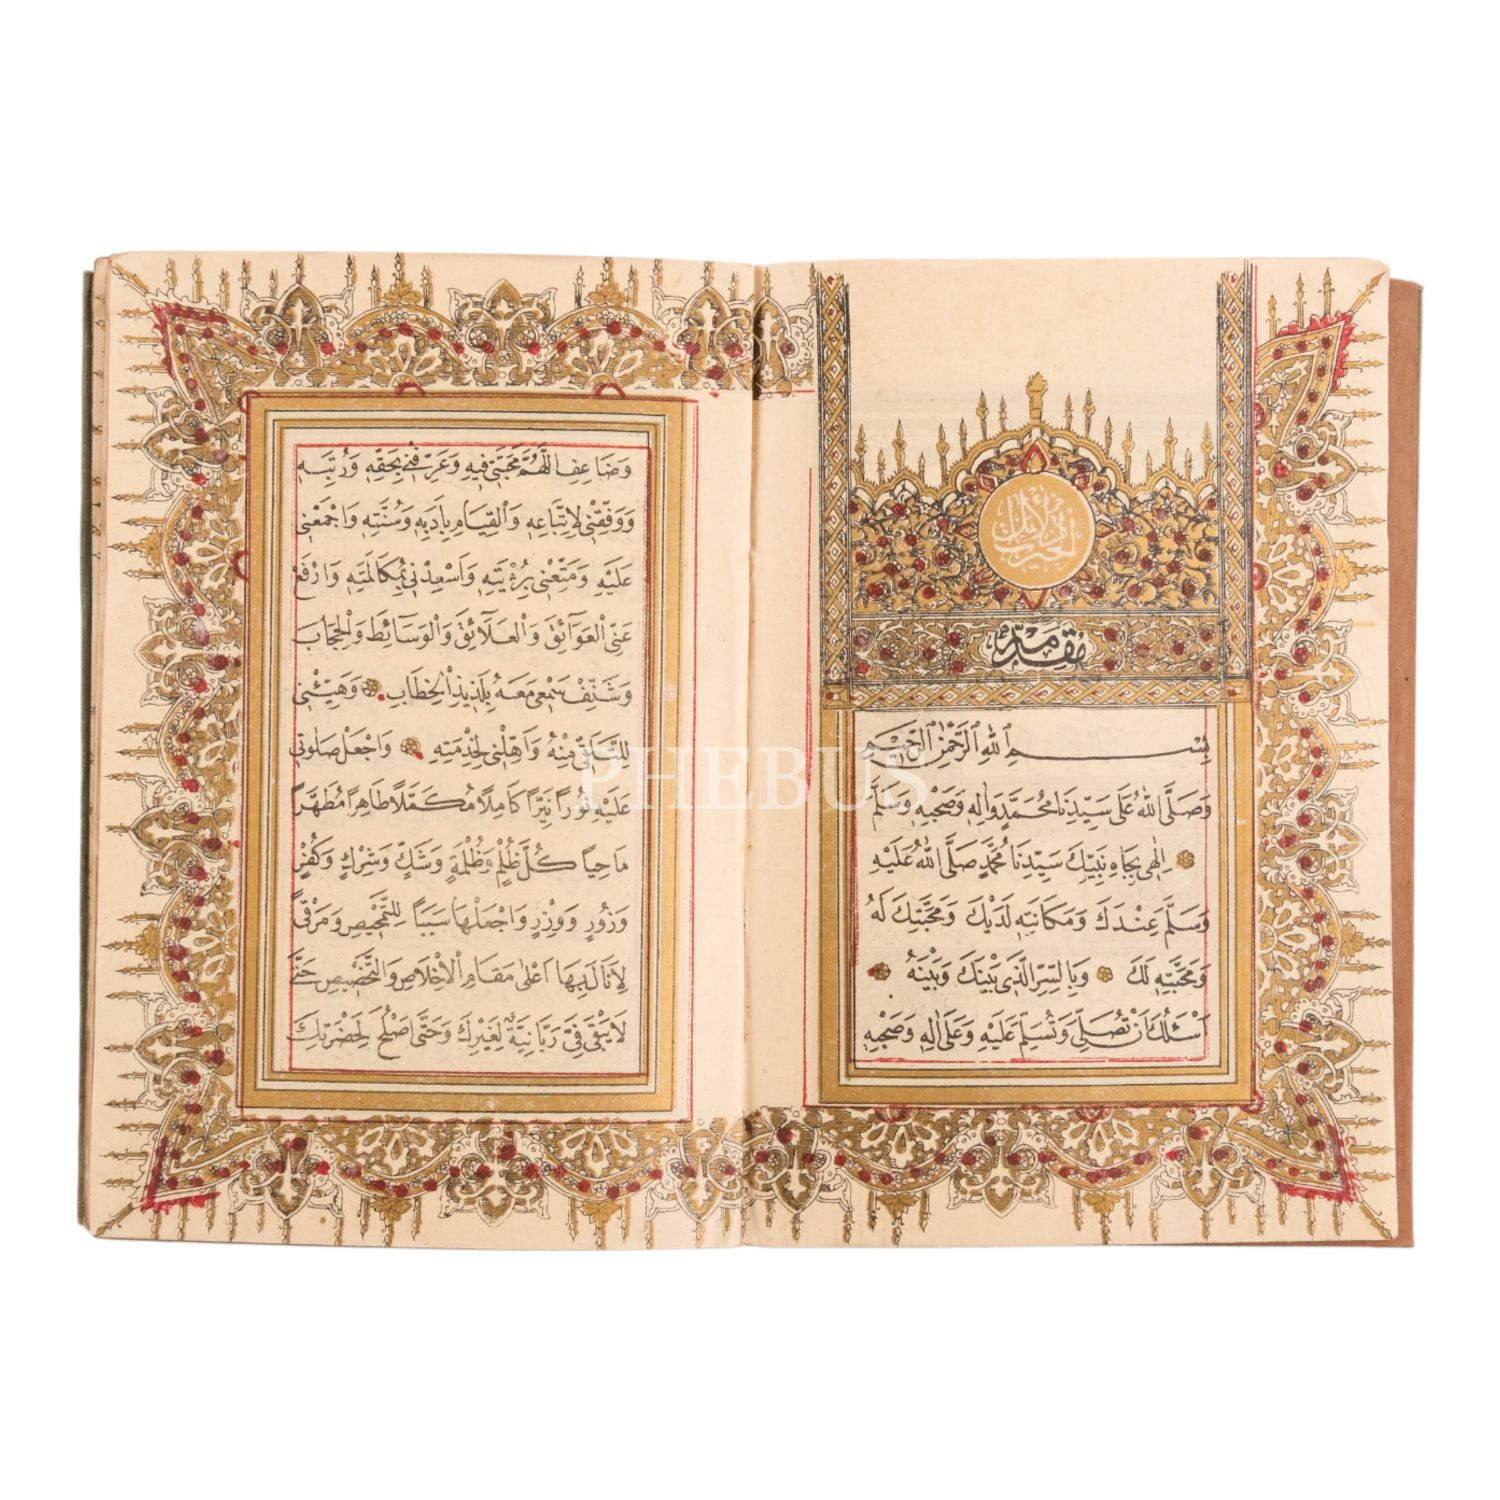 دلائل الخيرات
مقدمه
بِسْمِ اللهِ الرَّحْمٰنِ الرَّحِيمِ
وَصَلَّى اللهُ عَلَى سَيِّدِنَا مُحَمَّدٍ وَاٰلِهِ وَصَحْبِهِ وَسَلَّمَ
اِلٰهِى بِجَاهِ نَبِيِّكَ سَيِّدِنَا مُحَمَّدٍ صَلَّى اللهُ عَلَيْهِ
وَسَلَّمَ عِنْدَكَ وَمَكَانَتِهِ لَدَيْكَ وَمَحَبَّتِكَ لَهُ
وَمَحَبَّتِهِ لَكَ وَبِالسِّرِّ الَّذِى بَيْنَكَ وَبَيْنَهُ
اَسْئَلُكَ اَنْ تُصَلِّىَ وَتُسَلِّمَ عَلَيْهِ وَعَلَى اٰلِهِ وَصَحْبِهِ
وَضَاعِفِ اللّٰهُمَّ مَحَبَّتِى فِيهِ وَعَرِّفْنِى بِحَقِّهِ وَرُتَبِهِ
وَوَفِّقْنِى لِاتِّبَاعِهِ وَالْقِيَامِ بِاَدَبِهِ وَسُنَّتِهِ وَاجْمَعْنِى
عَلَيْهِ وَمَتِّعْنِى بِرُؤْيَتِهِ وَاَسْعِدْنِى بِمُكَالَمَتِهِ وَارْفَعْ
عَنِّى الْعَوَائِقَ وَالْعَلَائِقَ وَالْوَسَائِطَ وَالْحِجَابَ
وَشَنِّفْ سَمْعِى مَعَهُ بِلَذِيذِ الْخِطَابِ وَهَيِّئْنِى
لِلتَّلَقِّى مِنْهُ وَاَهِّلْنِى لِخِذْمَتِهِ وَاجْعَلْ صَلَوتِى
عَلَيْهِ نُورًا نَيِّرًا كَامِلًا مُكَمَّلًا طَاهِرًا مُطَهَّرًا
مَاحِيًا كُلَّ ظُلْمٍ وَظُلْمَةٍ وَشَكٍّ وَشِرْكٍ وَكُفْرٍ
وَزُورٍ وَوِزْرٍ وَاجْعَلْهَا سَبَبًا لِلتَّمْحِيصِ وَمَرْقًى
لِاَنَالَ بِهَا اَعْلٰى مَقَامِ الْاِخْلَاصِ وَالتَّخْصِيصِ حَتَّى
لَا يَبْقٰى فِىَّ رَبَّانِيَّةٌ لِغَيْرِكَ وَحَتَّى اَصْلُحَ لِحَضْرَتِكَ
PHEBUS